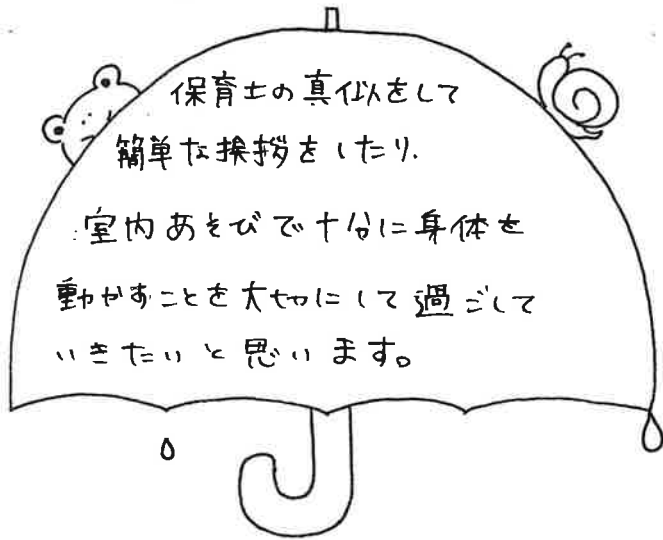 保育士の真似をして
簡単な挨拶をしたり、
室内あそびで十分に身体を
動かすことを大切にして過ごして
いきたいと思います。